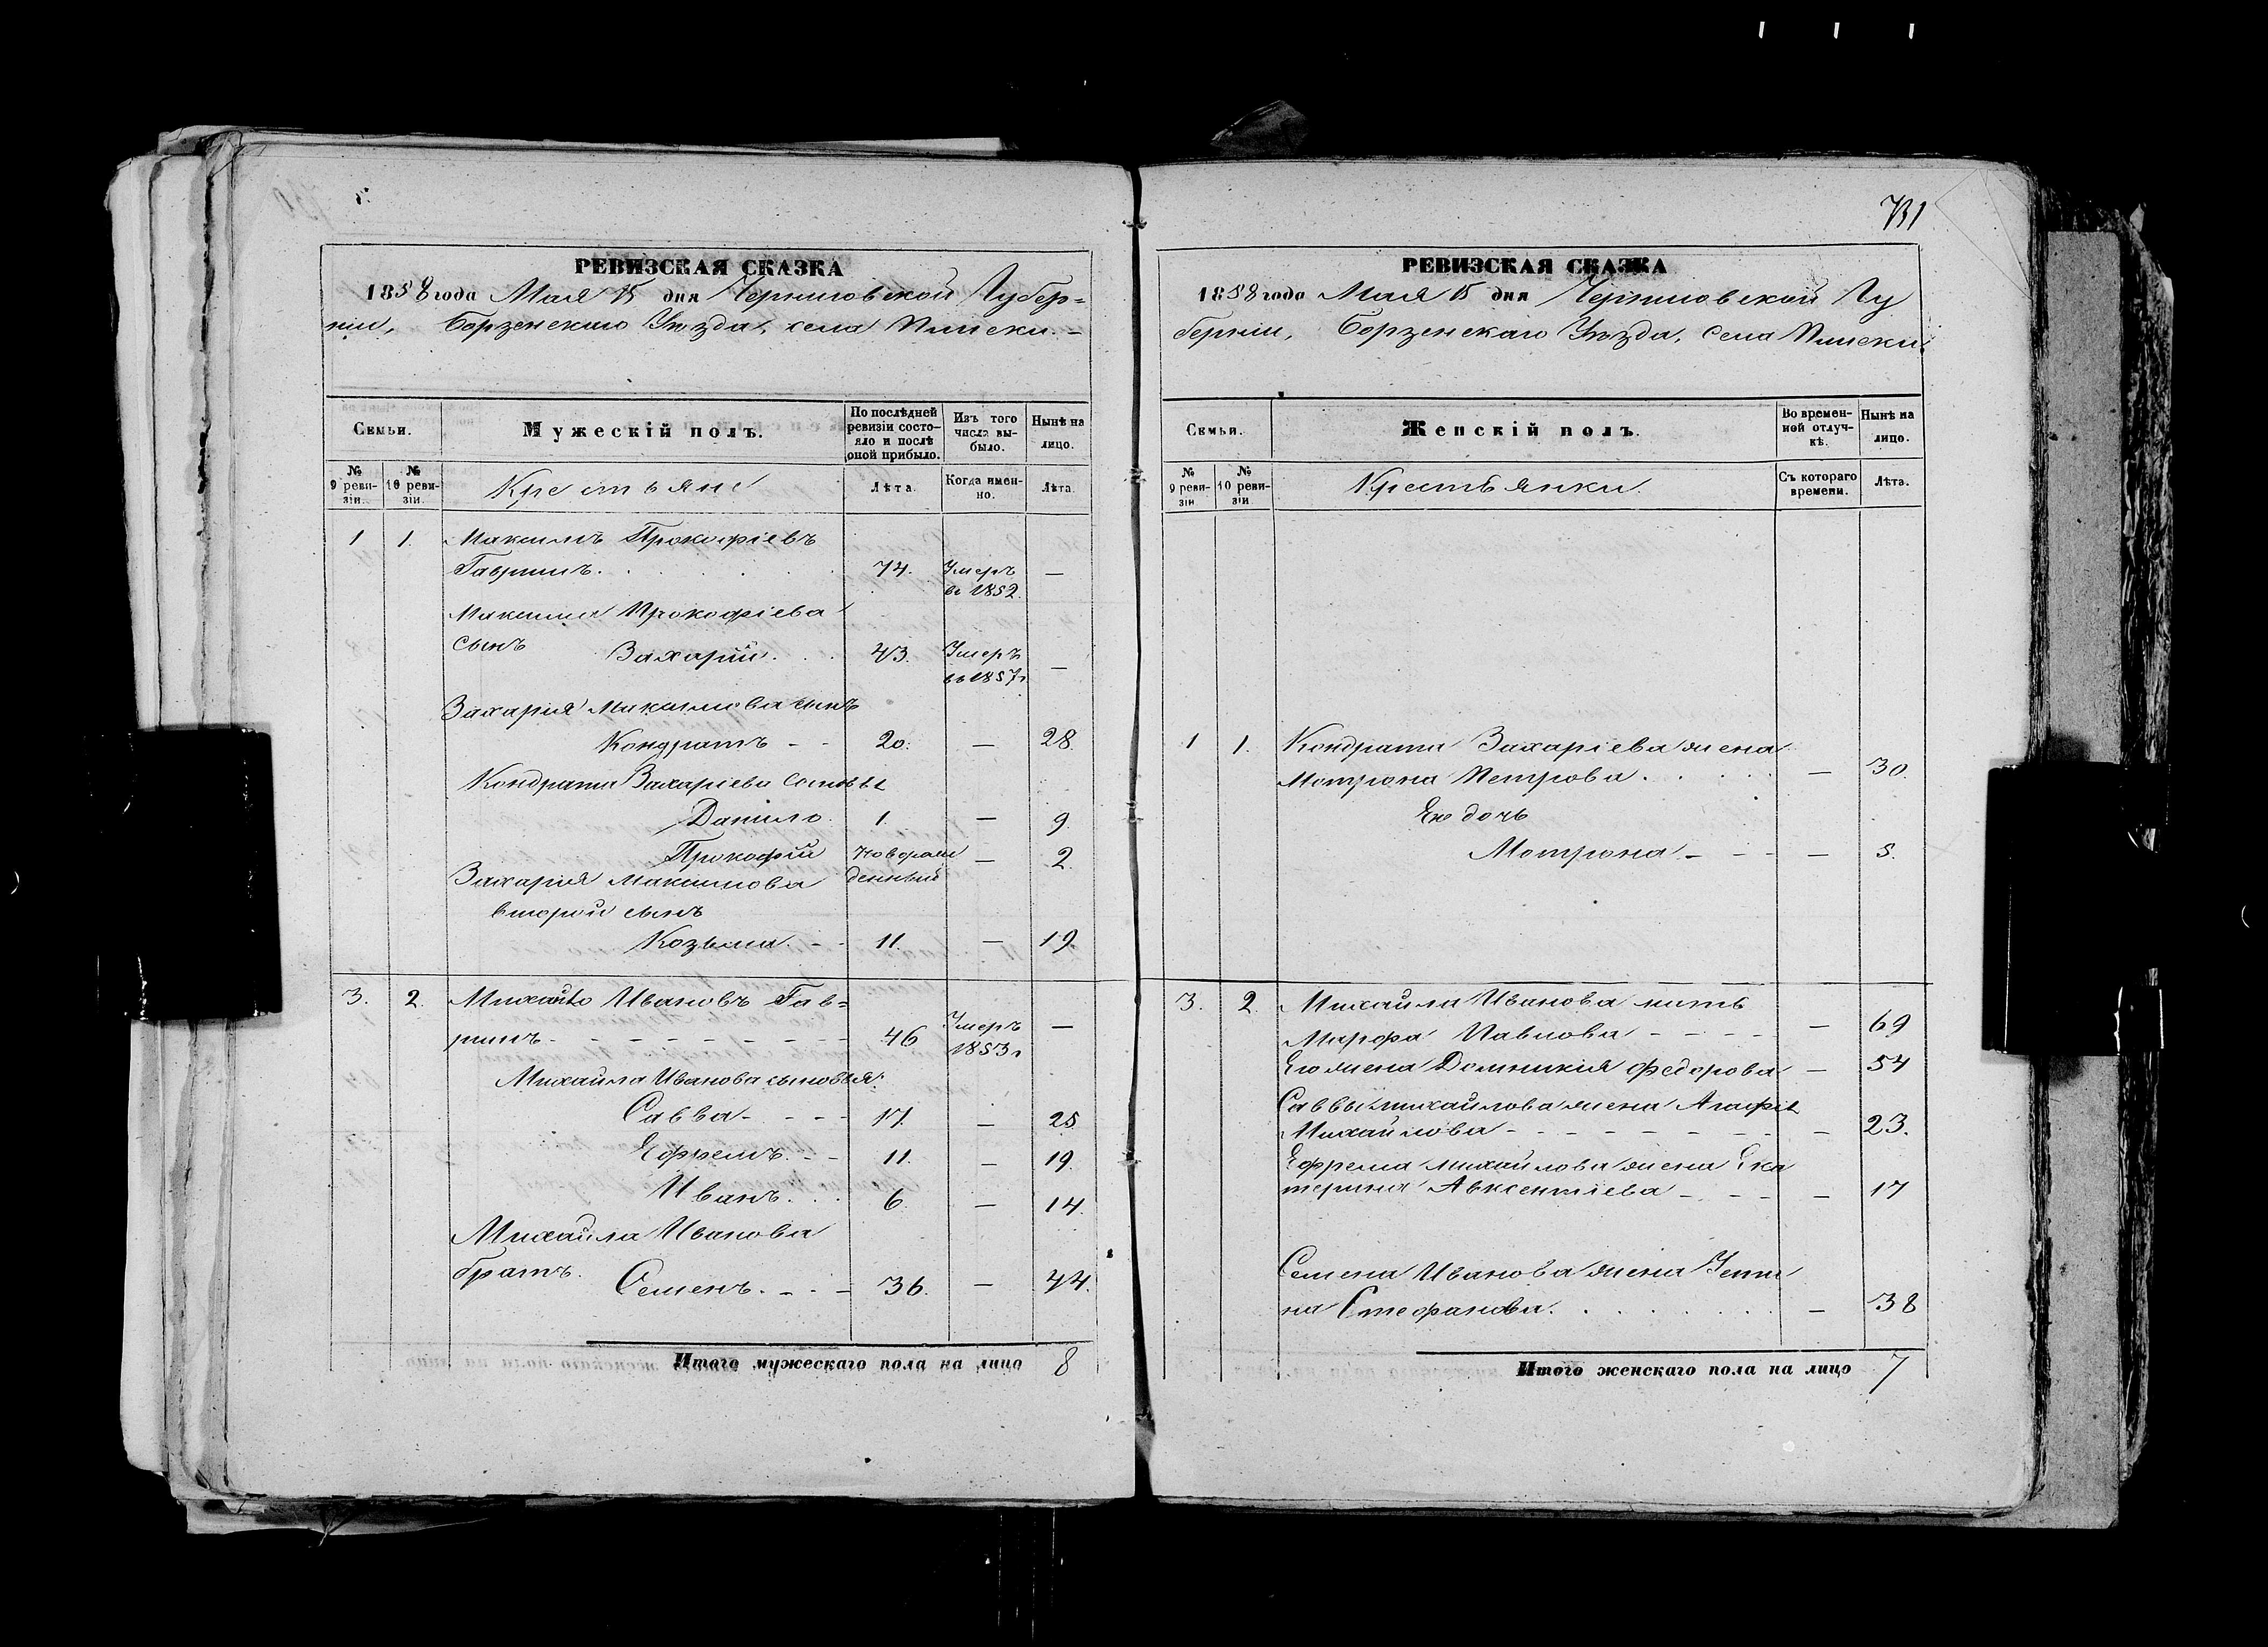 РЕВИЗСКАЯ СКАЗКА
1858 года Мая 15 дня Черниговской Губер=
ніи, Борзенскаго Уѣзда, села Плиски. –
Семьи.
Мужескій полъ.
По послѣдней ревизіи состо-яло и послѣ оной прибыло.
Изъ того числа вы-было.
Нынѣ на лицо.
№ 9 реви-зіи.
№ 10 реви-зіи.
Крестьяне
Лѣта.
Когда имен-но.
Лѣта.
1 1. Максимъ Прокофіевъ
Гавришъ. 74. Умеръ въ 1852. —
Максима Прокофіева
сынъ Захарій. 43. Умеръ въ 1857г —
Захарія Максимова сынъ
Кондратъ - - 20. — 28.
Кондрата Захаріева сыновья
Данило. 1. — 9.
Прокофій новорож денный — 2.
Захарія Максимова
второй сынъ
Козьма. - - 11. — 19.
3. 2. Михайло Ивановъ Гав=
ришъ - - - - - - - - 46 Умеръ 1853г —
Михайла Иванова сыновья:
Савва - - - - 17. — 25
Ефремъ. - - 11. — 19.
Иванъ. . . 6. — 14.
Михайла Иванова
братъ. Семенъ. - . - 36. — 44.
Итого мужескаго пола на лицо 8
731
РЕВИЗСКАЯ СКАЗКА
1858 года Мая 15 дня Черниговской Гу
берніи, Борзенскаго Уѣзда, села Плиски.
Семьи.
Женскій полъ.
Во времен-ной отлуч-кѣ.
Нынѣ на лицо.
№ 9 реви-зіи
№ 10 реви-зіи
Крестьянки.
Съ котораго времени.
Лѣта.
1 1. Кондрата Захаріева жена
Мотрона Петрова. — 30.
Ея дочь
Мотрона. - - - — 5.
3. 2. Михайла Иванова мать
Марфа Павлова - - - - — 69
Его жена Домникія Федорова — 54
Саввы Михайлова жена Агафія
Михайлова - - - - - - - - — 23.
Ефрема Михайлова жена Ека
терина Авксентіева - - - - — 17
Семена Иванова жена Усти
на Стефанова. — 38
Итого женскаго пола на лицо 7